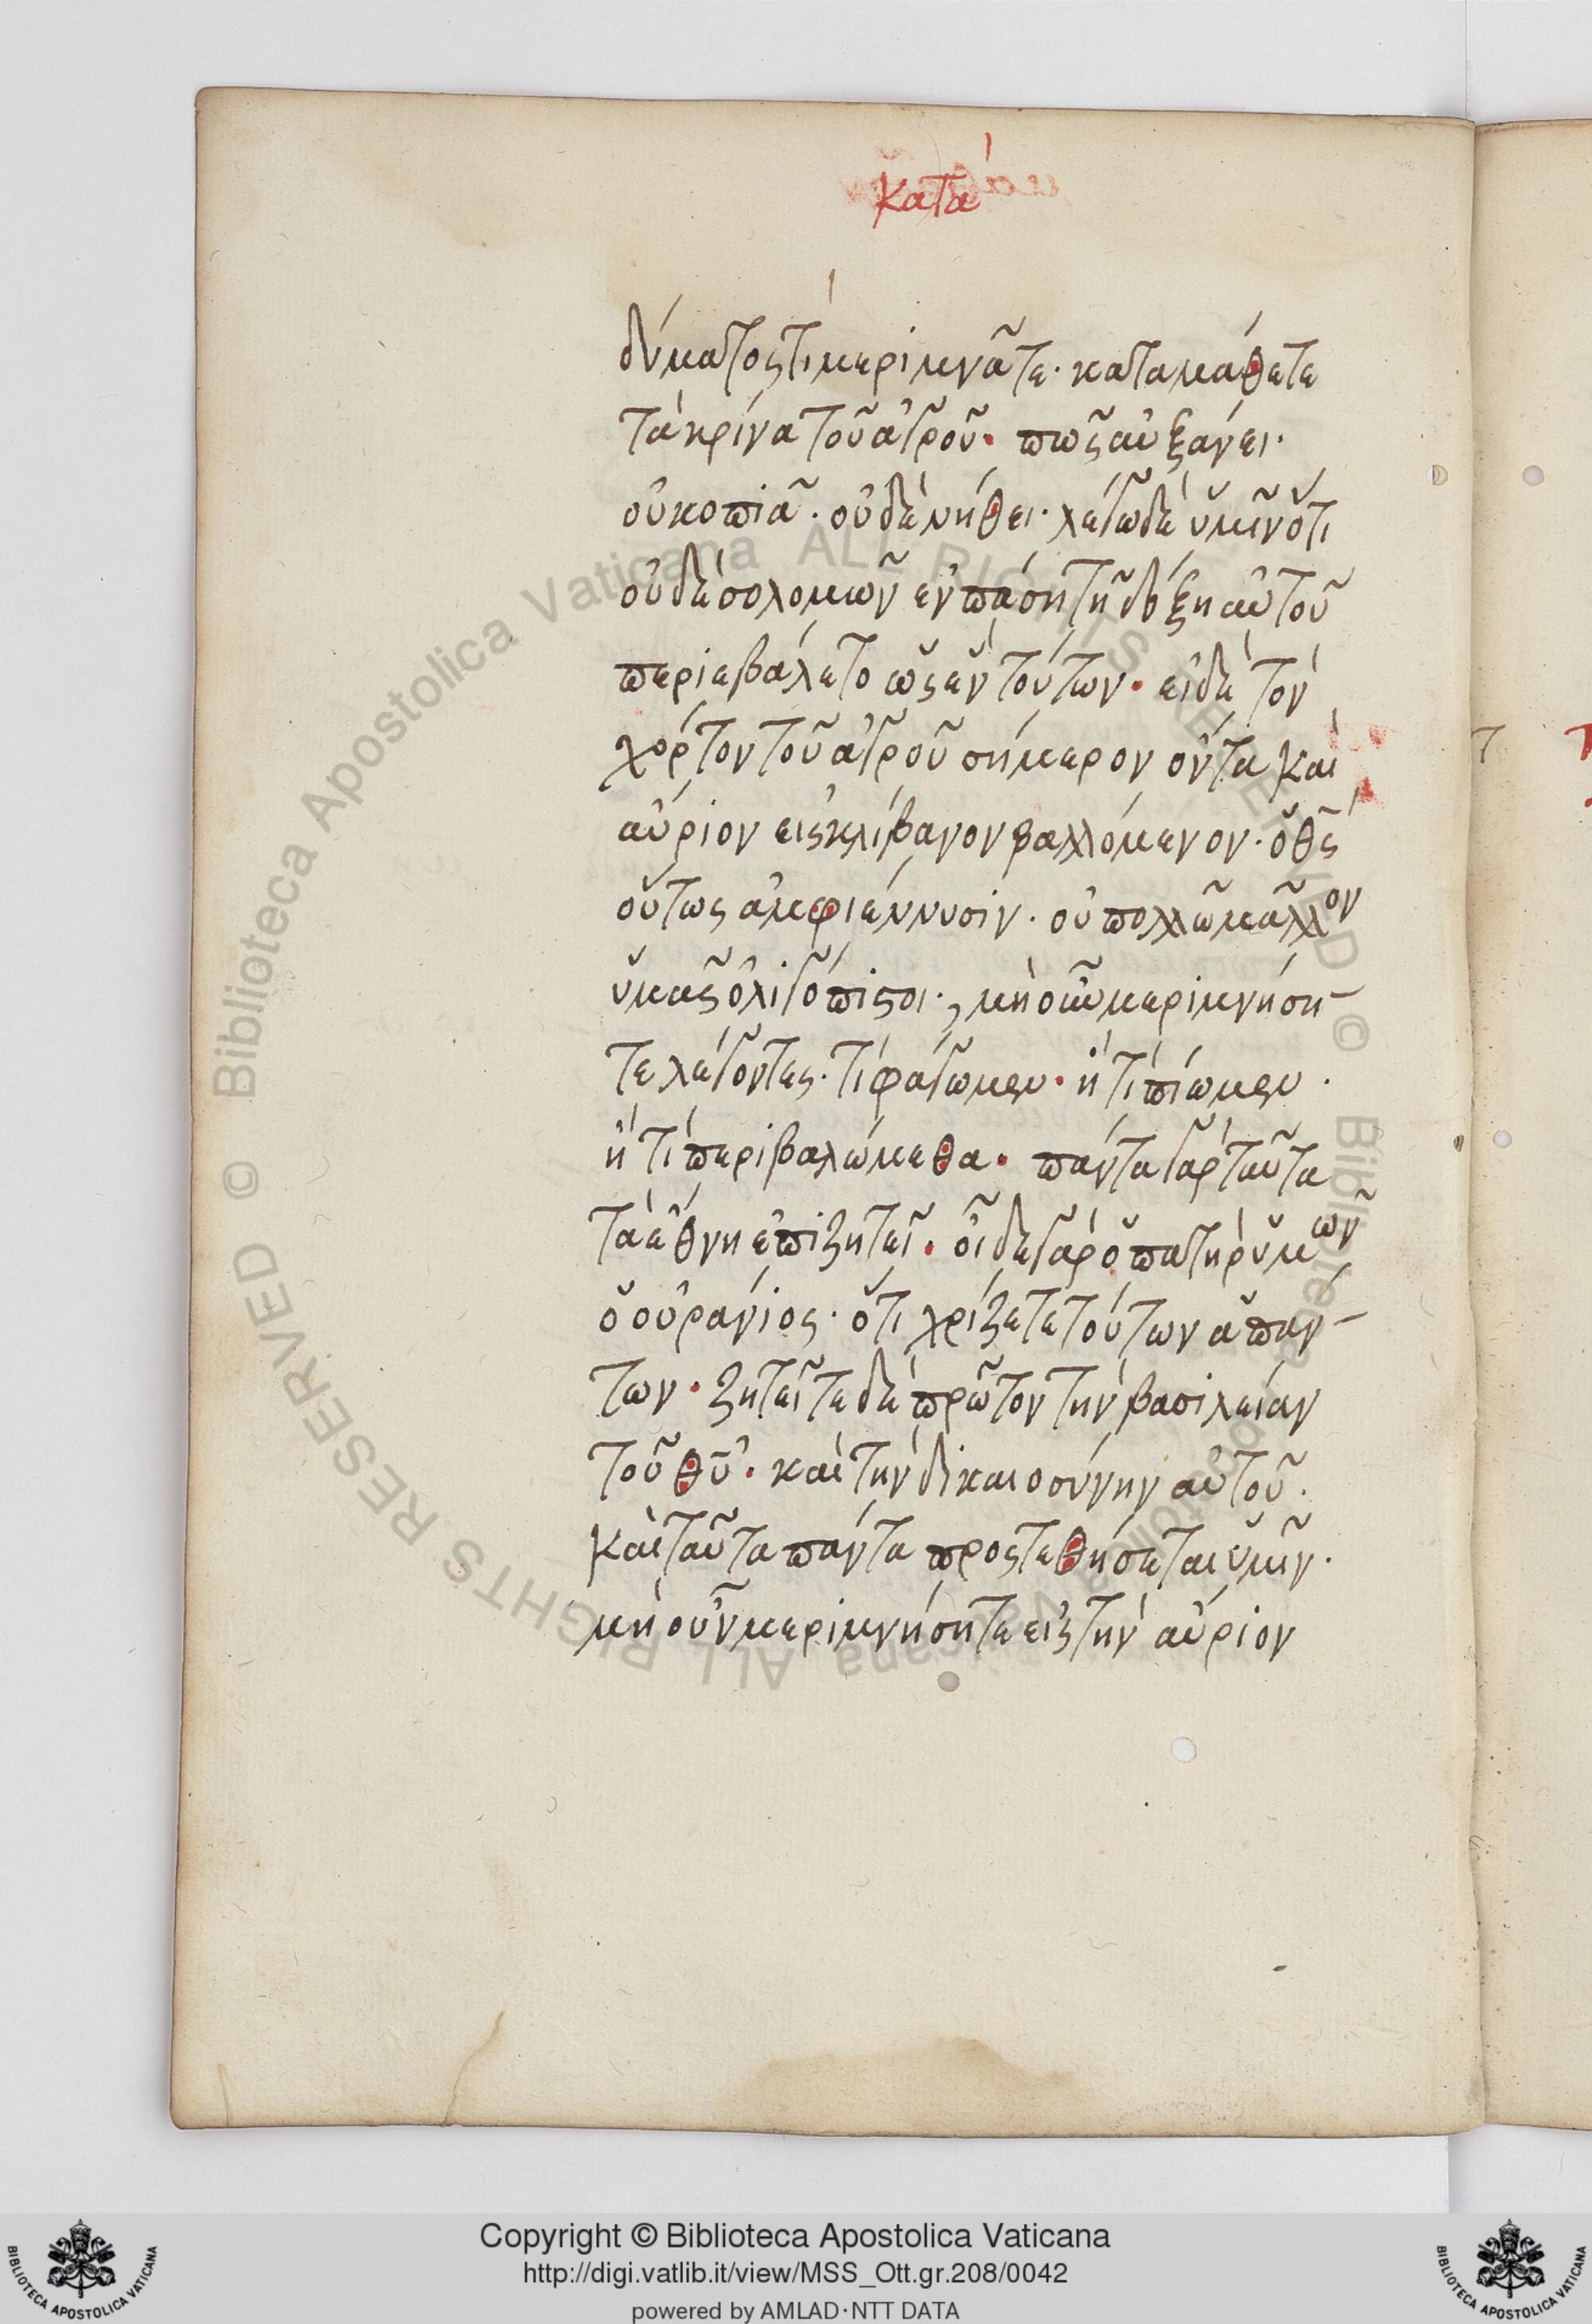 κατὰ
δύματος τί μεριμνᾶτε· καταμάθετε
τὰ κρίνα τοῦ ἀγροῦ· πῶς αὐξάνει·
οὐ κοπιᾶ· οὐδὲ νήθει· λέγω δὲ ὑμῖν ὅτι
οὐδὲ σολομῶν ἐν πάση τῆ δόξη αὐτοῦ
περιεβάλετο ὡς ἓν τούτων· εἰ δὲ τὸν
χόρτον τοῦ ἀγροῦ σήμερον ὄντα καὶ
αὔριον εἰς κλίβανον βαλλόμενον· ὁ θς
οὕτως ἀμφιέννυσιν· οὐ πολλῶ μᾶλλον
ὑμᾶς ὀλιγόπιστοι; μὴ οὖν μεριμνήση-
τε λέγοντες· τί φάγωμεν· ἢ τί πίωμεν·
ἢ τί περιβαλώμεθα· πάντα γὰρ ταῦτα
τὰ ἔθνη ἐπιζητεῖ· οἶδε γὰρ ὁ πατὴρ ὑμῶν
ὁ οὐράνιος· ὅτι χρίζετε τούτων ἁπάν-
των· ζητεῖτε δὲ πρῶτον τὴν βασιλείαν
τοῦ θυ· καὶ τὴν δικαιοσύνην αὐτοῦ·
καὶ ταῦτα πάντα προστεθήσεται ὑμῖν·
μὴ οὖν μεριμνήσητε εἰς τὴν αὔριον
Biblioteca Apostolica Vaticana ALL RIGHTS RESERVED ©
Copyright © Biblioteca Apostolica Vaticana
http://digi.vatlib.it/view/MSS_Ott.gr.208/0042
powered by AMLAD·NTT DATA
BIBLIOTECA APOSTOLICA VATICANA
BIBLIOTECA APOSTOLICA VATICANA